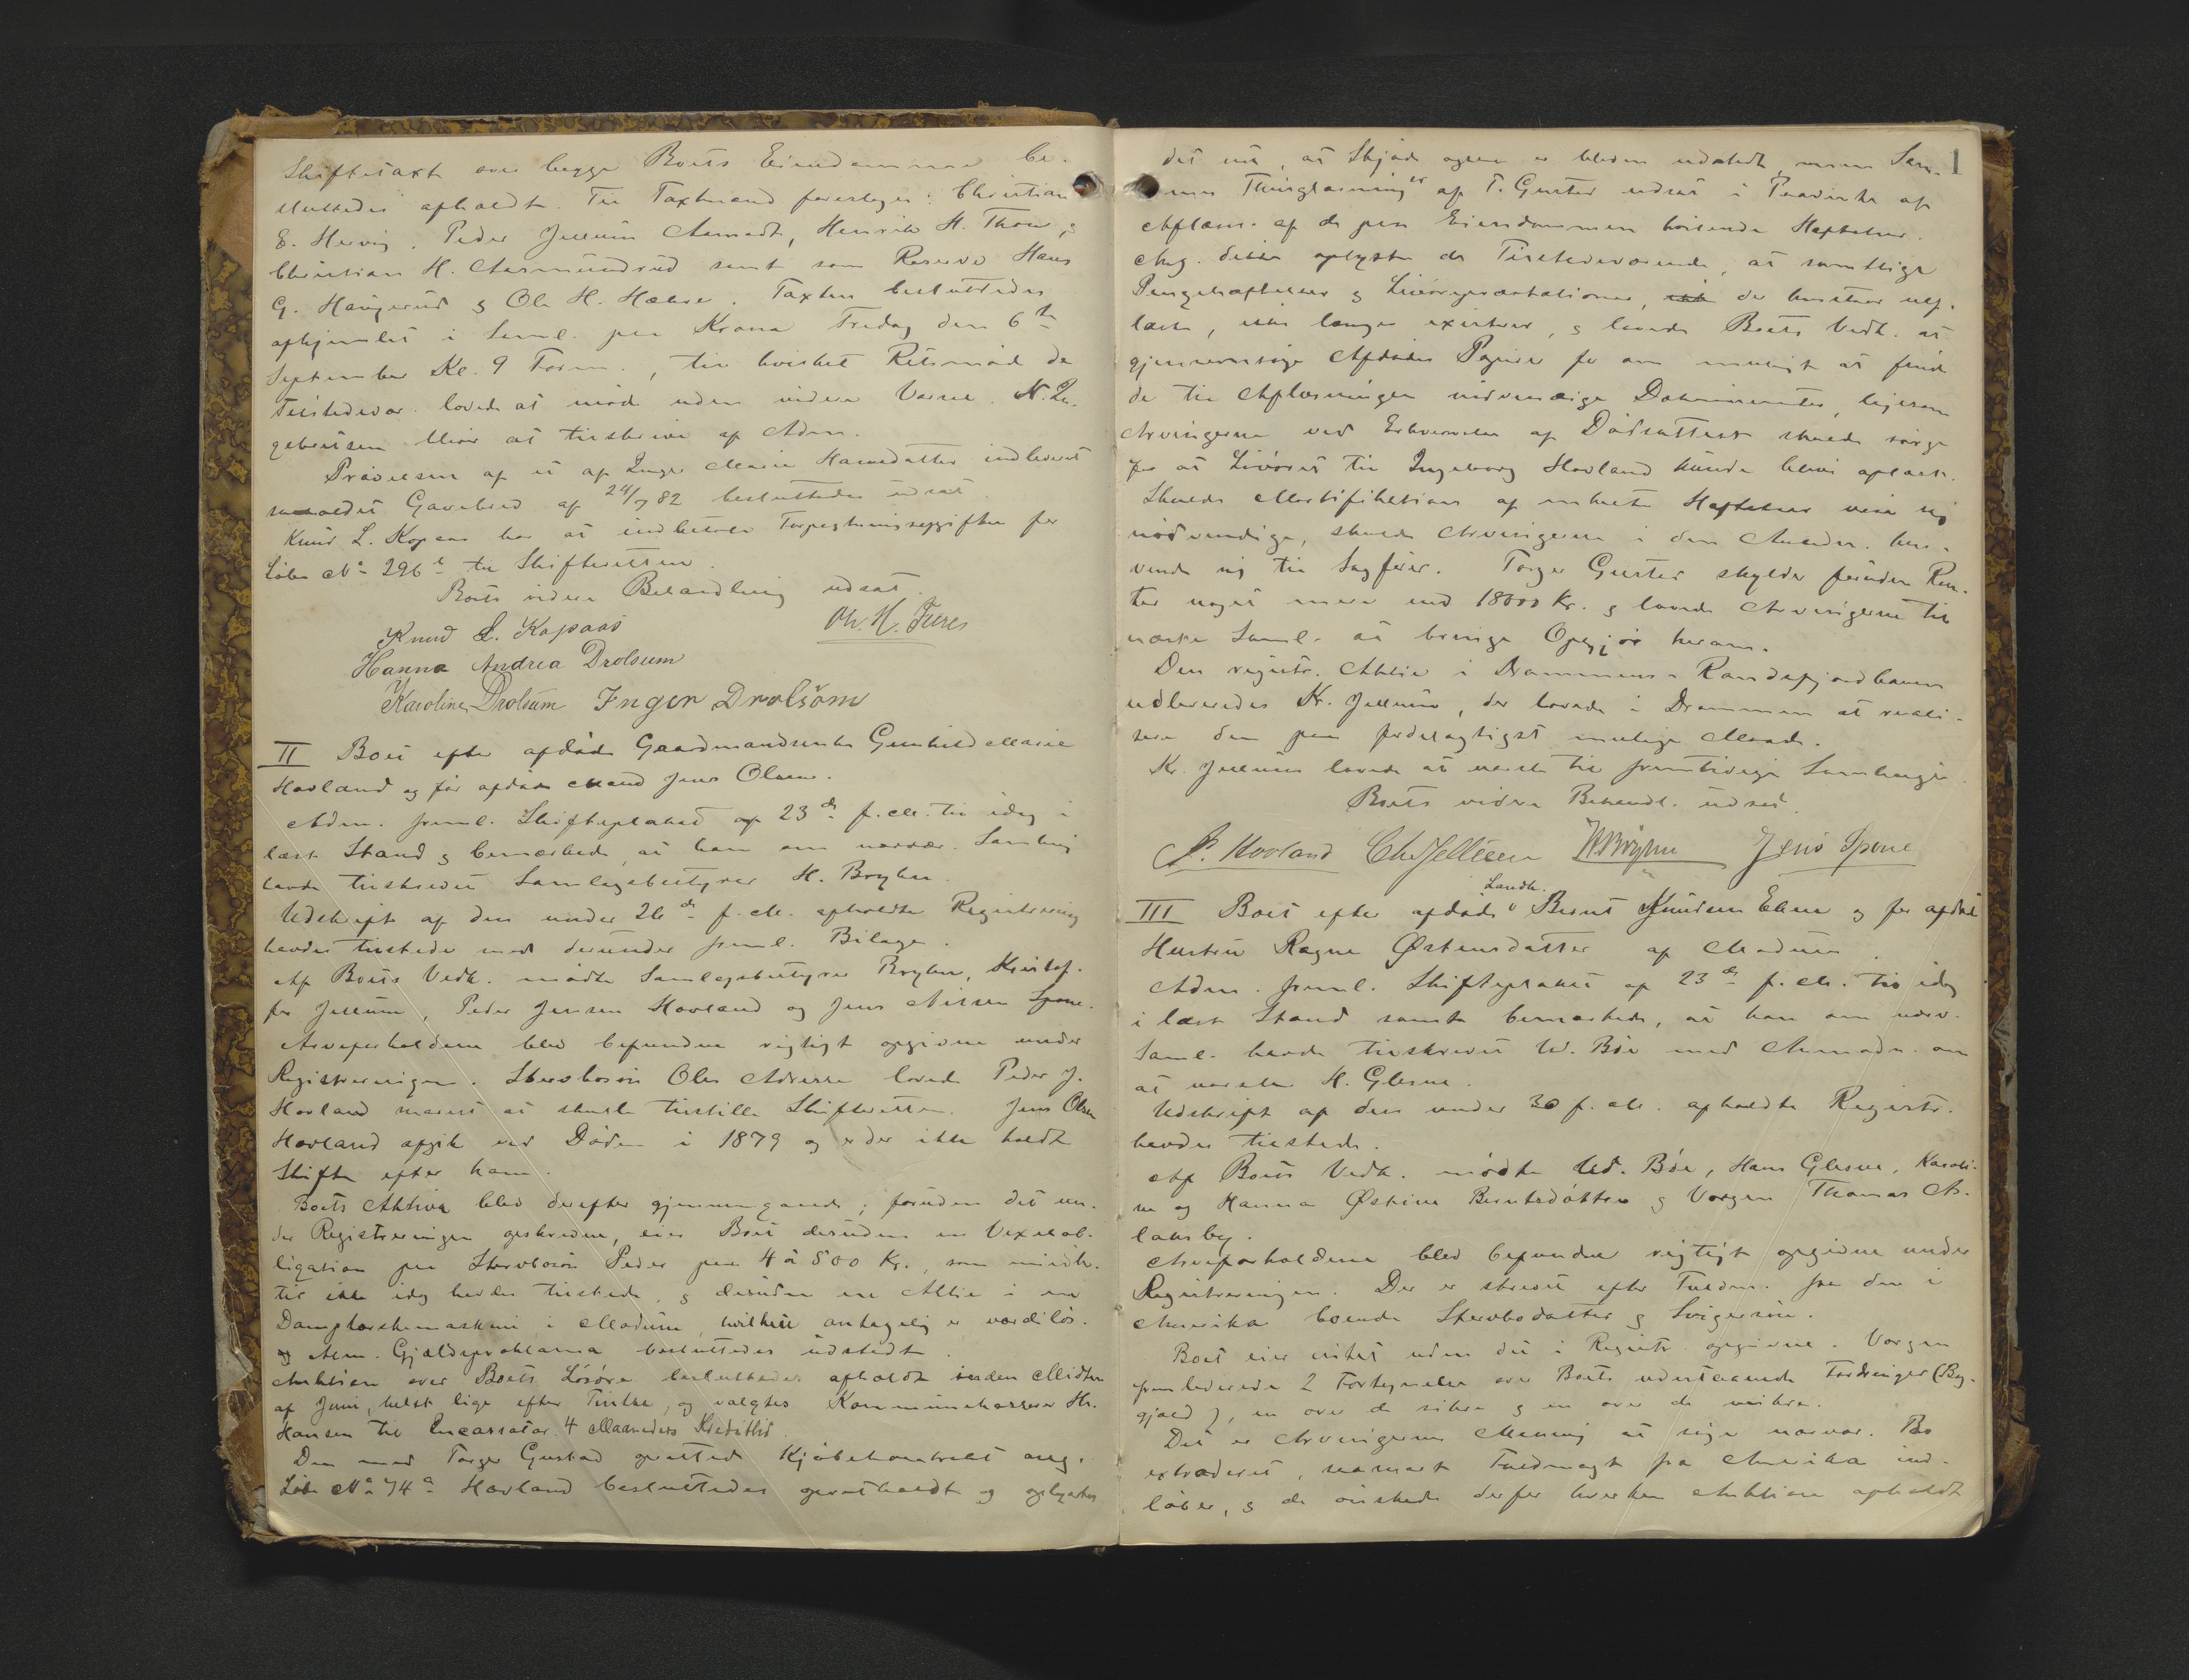 Skiftetaxt over begge Boets Eiendomme be-
sluttedes afholdt. Til Taxtmænd foresloges: Christian
E. Hervig, Peder Jellum Aamodt, Henrik H. Thon,
Christian H. Aasmundrud samt som Reserve Hans
G. Haugerud & Ole H. Hæhre. Taxten besluttedes
afhjemlet i Saml. paa Krona Fredag den 6te
September Kl. 9 Form., til hvilket Retsmøde de
Tilstedevær. lovede at møde uden videre Varsel. N.
gebretsen bliver at tilskrive af Adm.
Prøvelsen af et af Inger Marie Hansdatter indleveret
Gavebrev af 24/7 82 besluttedes udsat.
Knud L. Kopaas har at indbetale Forpagtningsafgiften for
Løbe No 296 til Skifteretten.
Boets videre Behandling udsat.
Knud L. Kopaas Ole H. Fures
Hanna Andrea Drolsum
Karoline Drolsum Inger Drolsom
II Boet efter afdøde Gaardmandsenke Gunhild Marie
Hovland og før afdøde Mand Jens Olsen.
Adm. freml. Skifteplakat af 23de f. M. til idag i
læst Stand & bemærkede, at han om nærvær. Samling
havde tilskrevet Samlagsbestyrer H. Bryhn.
Udskrift af den under 26de f. M. afholdte Registrering
havdes tilstede med derunder freml. Bilage.
Af Boets Vedk. mødte Samlagsbestyrer Bryhn, Kristof-
fer Jellum, Peder Jensen Hovland og Jens Nilsen Spone.
Arveforholdene blev befundne rigtigt opgivne under
Registreringen. Stervbosøn Oles Adresse lovede Peder J.
Hovland snarest at skulle tilstille Skifteretten. Jens Olsen
Hovland afgik ved Døden i 1879 og er der ikke holdt
Skifte efter ham.
Boets Aktiva blev derefter gjennemgaaede; foruden det un-
der Registreringen opskrevne, eier Boet desuden en Vexelob-
ligation paa Stervbosøn Peder paa 4 à 500 Kr., som imidler-
til ikke idag havdes tilstede, & desuden en Aktie i en
Damptærskemaskine i Modum, hvilken antagelig er værdiløs.
Alm. Gjældsproklama besluttedes udstedt.
Auktion over Boets Løsøre besluttedes afholdt inden Midten
af Juni, helst lige efter Pintse, og valgtes Kommunekasserer Hr.
Hansen til Incassator. 4 Maaneders Kredittid.
Den med Torger Gustad oprettede Kjøbekontrakt ang.
Løbe No 74a Hovland besluttedes opretholdt og oplystes
1
det nu, at Skjøde ogsaa er bleven udstedt, men
Thinglæsning af T. Guster udsat i Paavente af
Aflæsn. af de paa Eiendommen hvilende Heftelser.
Ang. disse oplyste de Tilstedeværende, at samtlige
Pengehæftelser & Livøresprestationer, der henstaar uaf-
læste, ikke længer existerer, & lovede Boets Vedk. at
gjennemsøge Afdødes Papirer for om muligt at finde
de til Aflæsningen nødvendige Dokumenter, ligesom
Arvingerne ved Erhvervelse af Dødsattest skulde sørge
for at Livøret til Ingeborg Hovland kunde blive aflæst.
Skulde Mortifikation af enkelte Heftelser vise sig
nødvendige, skulde Arvingerne i den Anledn. hen-
vende sig til Sagfører. Torger Guster skylder foruden Ren-
ter noget mere end 18000 Kr. & lovede Arvingerne til
næste Saml. at bringe Opgjør herom.
Den registr. Aktie i Drammens-Randsfjordbanen
udleveredes Kr. Jellum, der lovede i Drammen at reali-
sere den paa fordelagtigst mulige Maade.
Kr. Jellum lovede at varsle til fremtidige Samlinger.
Boets videre Behandl. udsat.
P. Hovland Chr Jellum H Bryhn Jens Spone
III Boet efter afdøde Landh. Bernt Knudsen Ekern og før afdøde
Hustru Ragne Østensdatter af Modum.
Adm. freml. Skifteplakat af 23de f. M. til idag
i læst Stand samt bemærkede, at han om nærv.
Saml. havde tilskrevet W. Bøe med Anmodn. om
at varsle H. Glesne.
Udskrift af den under 30 f. M. afholdte Registr.
havdes tilstede.
Af Boets Vedk. mødte W. Bøe, Hans Glesne, Karoli-
ne og Hanna Østine Berntsdøttre & Vergen Thomas A.
laksby.
Arveforholdene blev befundne rigtigt opgivne under
Registreringen. Der er skrevet efter Fuldm. fra den i
Amerika boende Stervbodatter & Svigersøn.
Boet eier intet uden det i Registr. opgivne. Vergen
fremleverede 2 Fortegnelser over Boets udestaaende Fordringer (Bog-
gjæld), en over de sikre & en over de usikre.
Det er Arvingernes Mening at søge nærvær. Bo
extraderet, saasnart Fuldmagt fra Amerika ind-
løber, & de ønskede derfor hverken Auktion afholdt